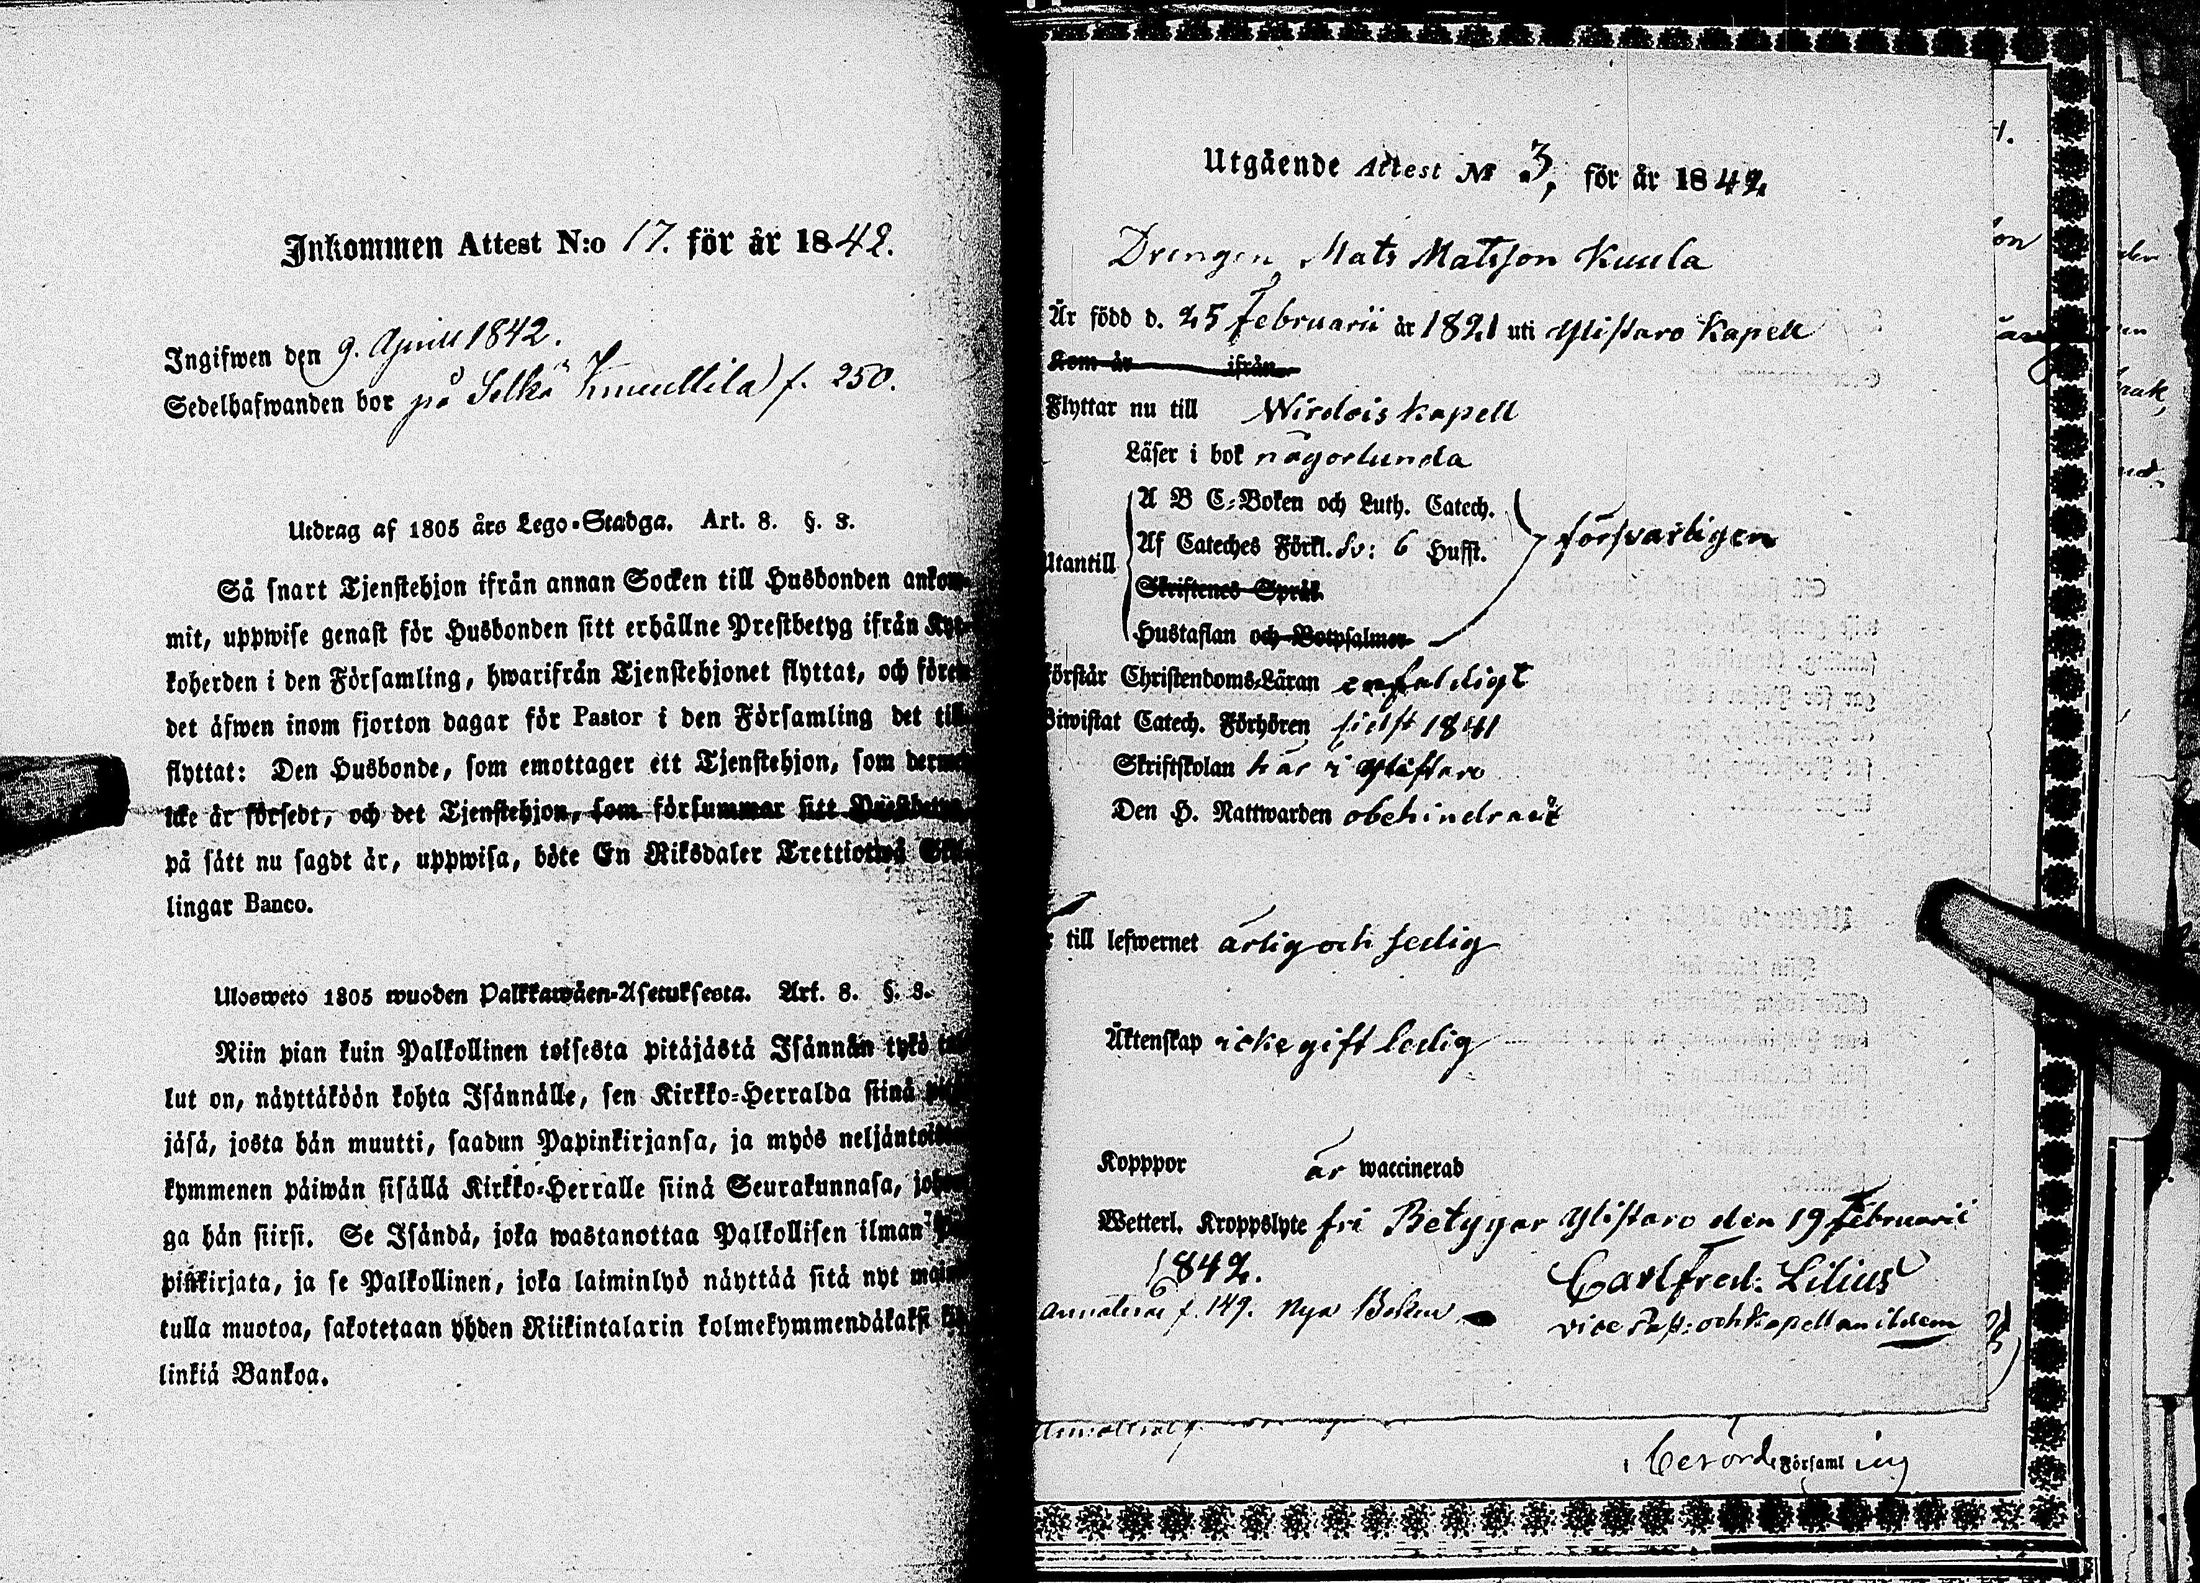 Inkommen Attest N:o 17. för år 1842.
Ingifwen den 9. Aprill 1842.
Sedelhafwanden bor på Selkä Knuuttila) f. 250.
Utdrag af 1805 års Lego-Stadga. Art. 8. §. 3.
Så snart Tjenstehjon ifrån annan Socken till Husbonden ankom-
mit, uppwise genast för Husbonden sitt erhållne Prestbetyg ifrån Kyr-
koherden i den Församling, hwarifrån Tjenstehjonet flyttat, och förete
det äfwen inom fjorton dagar för Pastor i den Församling det till-
flyttat: Den Husbonde, som emottager ett Tjenstehjon, som dermed
icke är försedt, och det Tjenstehjon, som försummar sitt Prestbetyg,
på sätt nu sagdt är, uppwisa, böte En Riksdaler Trettiotwå Skil-
lingar Banco.
Ulosweto 1805 wuoden Palkkawäen-Asetuksesta. Art. 8. §. 3.
Niin pian kuin Palkollinen toisesta pitäjästä Isännän tykö tul-
lut on, näyttäköön kohta Isännälle, sen Kirkko-Herralda siinä pitä-
jäsä, josta hän muutti, saadun Papinkirjansa, ja myös neljäntoista-
kymmenen päiwän sisällä Kirkko-Herralle siinä Seurakunnasa, johon-
ga hän siirsi. Se Isändä, joka wastanottaa Palkollisen ilman Pa-
pinkirjata, ja se Palkollinen, joka laiminlyö näyttää sitä nyt mainit-
tulla muotoa, sakotetaan yhden Riikintalarin kolmekymmendäkaksi Kil-
linkiä Bankoa.
Utgående Attest No 3, för år 1842
Drengen Mats Matsson Kuula
Är född d. 25 Februarii år 1821 uti Ylistaro Kapell
Kom år ifrån
Flyttar nu till Wirdois kapell
Läser i bok någorlunda
A B C-Boken och Luth. Catech.
Af Cateches Förkl. Sv: 6 Hufst. försvarligen
Utantill
Skriftenes Språk
Hustaflan och Botpsalmer
Förstår Christendoms-Läran enfaldigt
Biwistat Catech. Förhören sidst 1841
Skriftskolan här i Ylistaro
Den H. Nattwarden obehindradt
till lefwernet ärlig och sedig
Äktenskap icke gift ledig
Kopppor är waccinerad
Wetterl. Kroppslyte fri Betygar Ylistaro den 19 Februarii
1842. Carl Fred: Lilius
Annoteras f. 149. Nya Boken vice Past: och kapellan ibidem
berörde Församling